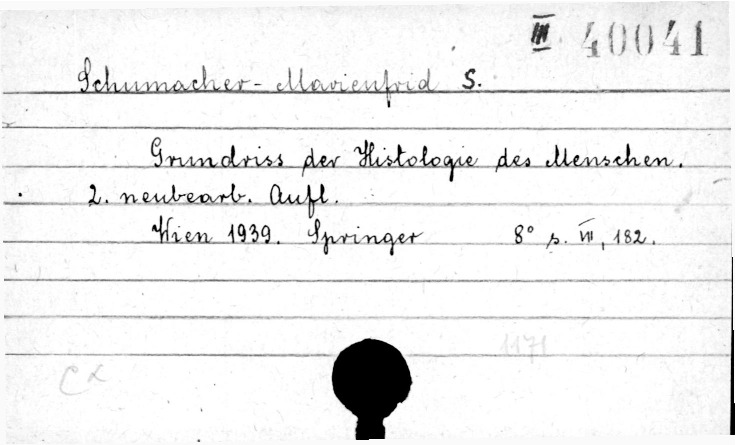 III 40041
Schumacher-Marienfrid S.
Grundriss der Histologie des Menschen.
2. neubearb. Aufl.
Wien 1939. Springer 8° s. VIII, 182.
1171
Cx